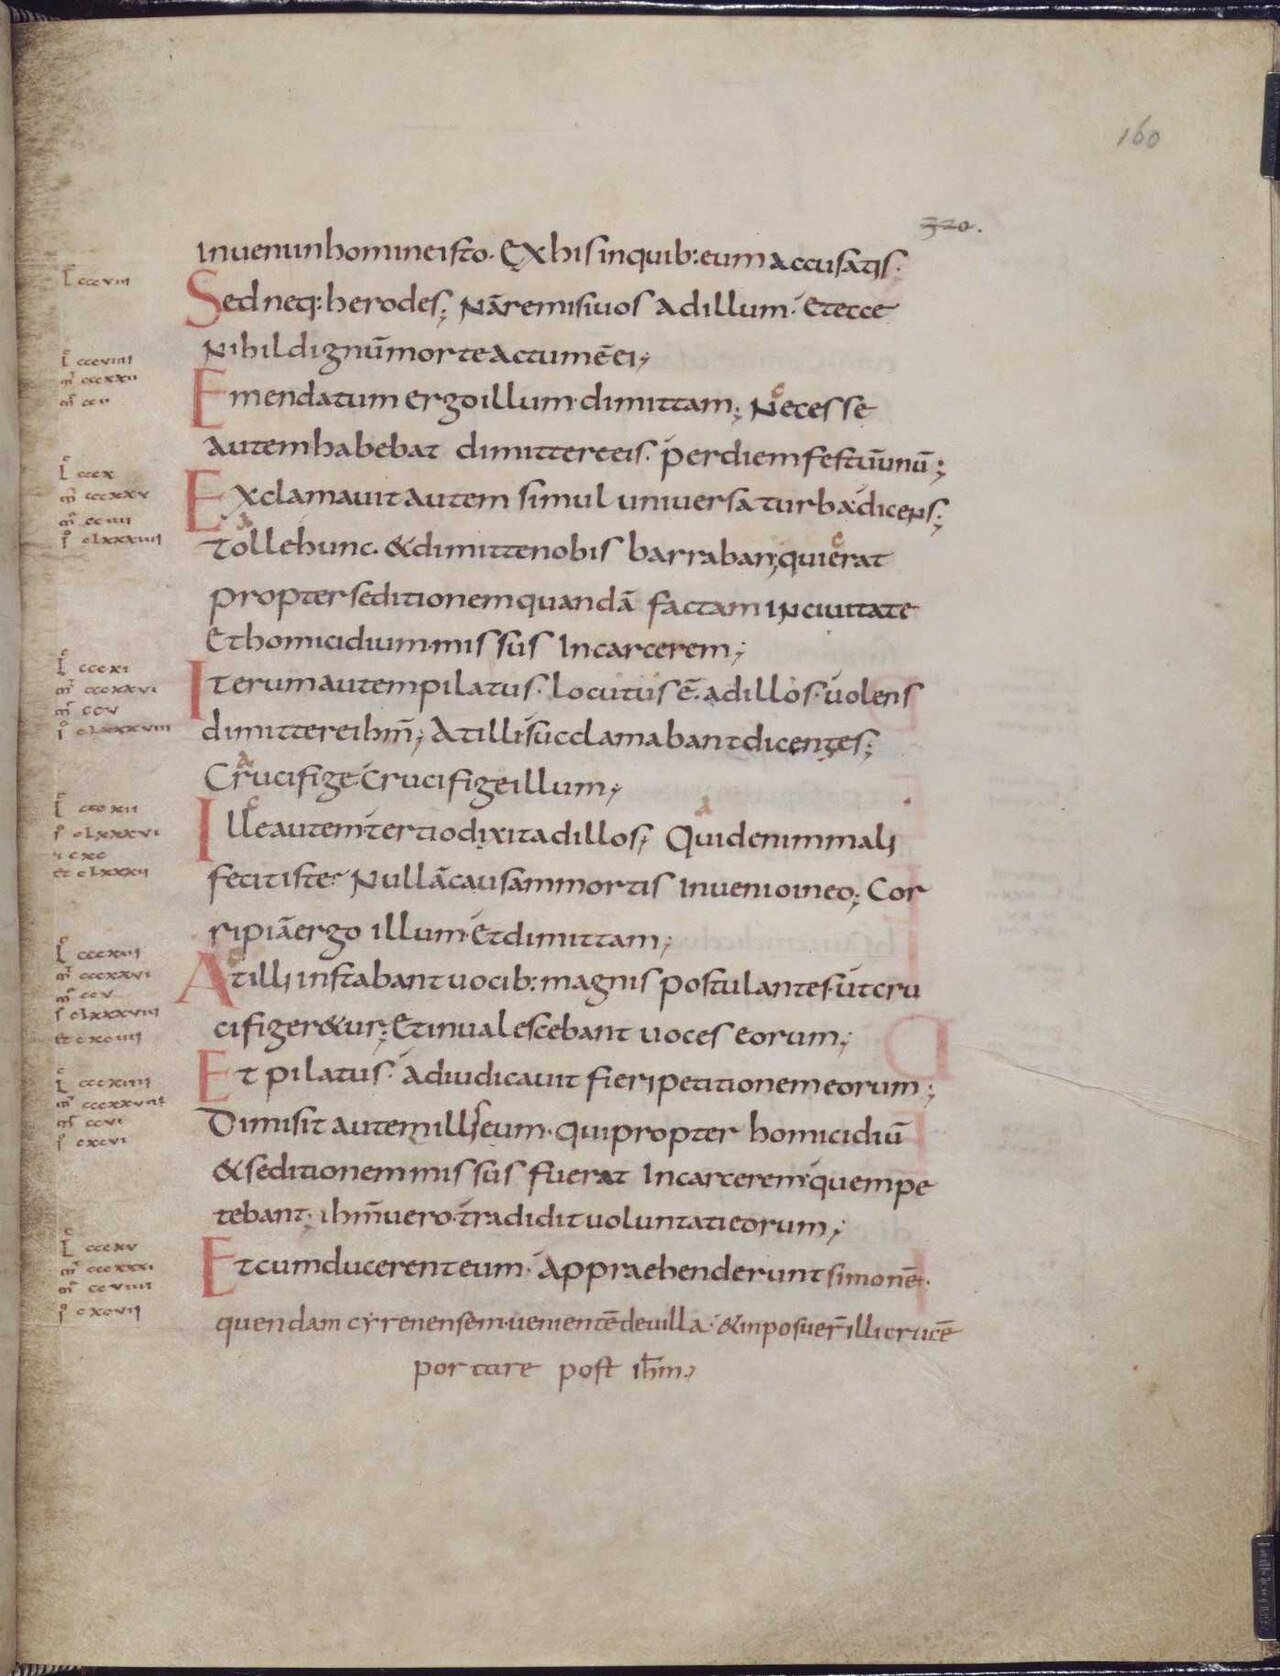 160
320.
inuenunhomineisto. Exhisinquib:eumaccusatis.
L cccviii
Sedneq:herodes; Nāremisiuos adillum. Etecce
Nihildignūmorteactumēei;
L cccviiii
m cccxxii
m ccii
Emendatum ergoillum.dimittam; Necesse
autemhabebat dimittereeis. perdiemfestūunū;
L cccx
m cccxxv
m cciiii
Exclamauitautem simul uniuersa turba.dicens;
tollehunc. &dimittenobis barraban;quierat
i clxxxiiii
propterseditionemquandā factam inciuitate
Ethomicidium.missus Incarcerem;
L cccxi
m cccxxvi
m ccv
i clxxxviii
Iterumautempilatus. locutusē.adillos.uolens
dimittereihm̄; Atillisucclamabantdicentes;
Crucifige.crucifigeillum;
L cccxii
i clxxxvi
i cxc
et clxxxii
Illeautemtertiodixitadillos; Quidenimmali
fecitiste? Nullācausammortis Inuenioineo; Cor
ripiāergo illum.Etdimittam;
L cccxiii
m cccxxvi
m ccv
i clxxxviii
et cxciiii
Atilliinstabantuocib:magnis postulantes.utcru
cifiger&ur; Etinualescebant uoces eorum;
L cccxiiii
m cccxxviii
m ccvi
i cxcvi
Et pilatus. adiudicauit fieripetitionemeorum;
Dimisit autemilliseum.quipropter homicidiū
&seditionemmissus fuerat Incarcerem.quempe
tebant; ihm̄uero.tradidituoluntatieorum;
L cccxv
m cccxxxi
m ccviiii
i cxcvii
Etcumducerenteum. Appraehenderuntsimonē.
quendam cyrenensem.uenientēdeuilla. &inposuer̄illicrucē
portare post ihm̄;